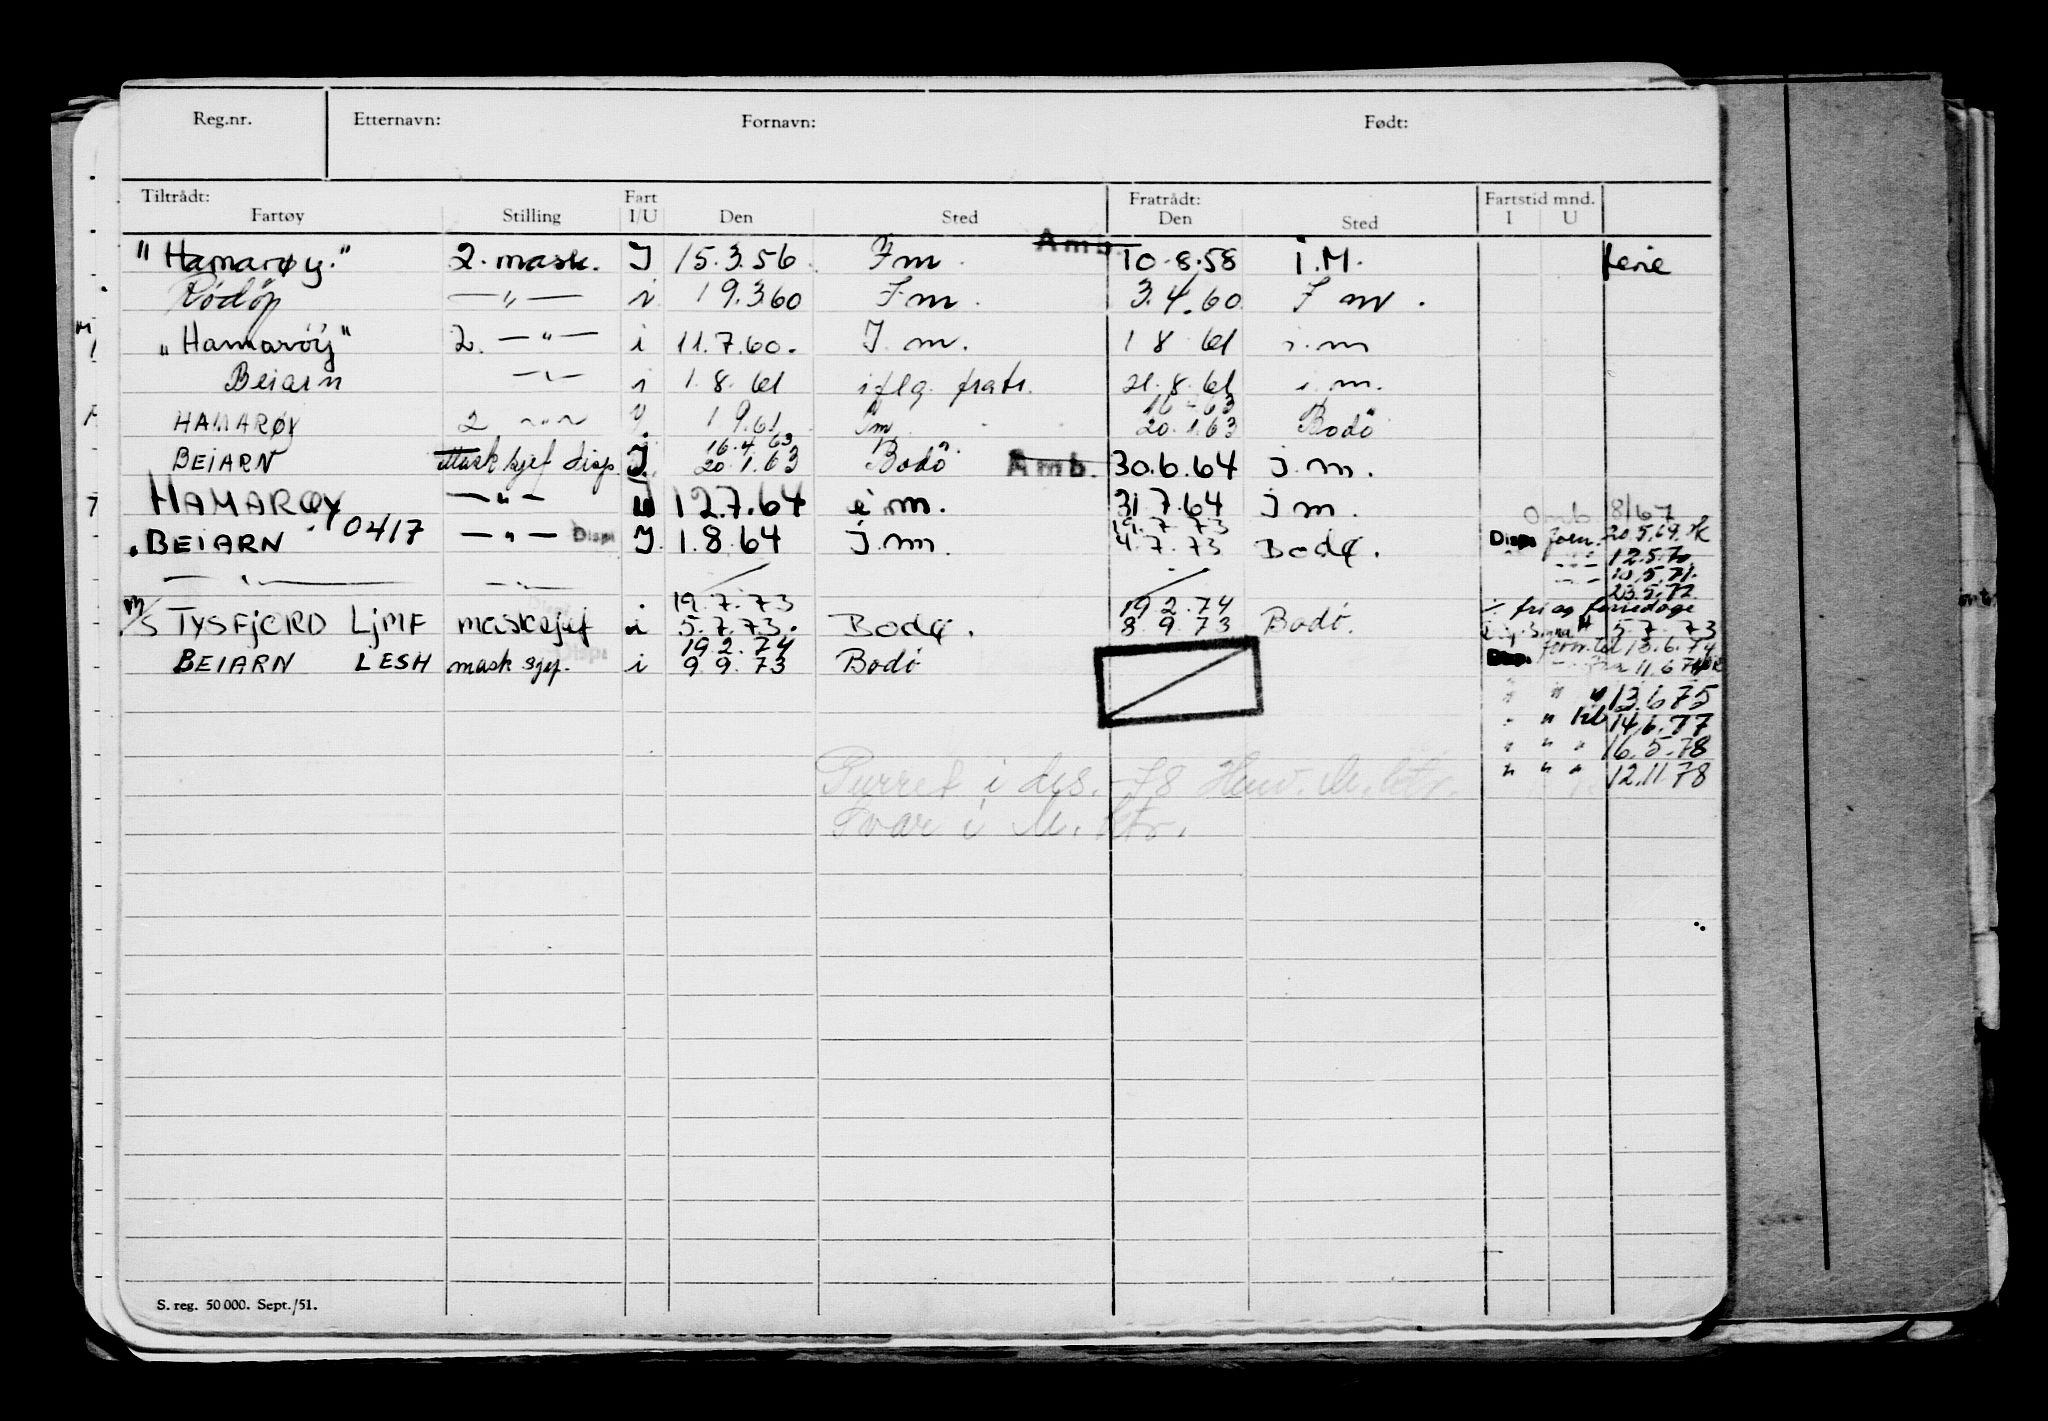 Reg.nr. Etternavn: Fornavn: Født:
Tiltrådt: Fartøy Stilling Fart I/U Den Sted Fratrådt: Den Sted Fartstid mnd. I U
"Hamarøy." 2. mask. I 15.3.56. Im. Amb. 10.8.58 i.M. ferie
Rödöy — " — i 19.3.60 I m. 3.4.60 I m.
"Hamaröy" 2. — " — i 11.7.60. I. m. 1 8 61 i.m
Beiarn — " — i 1.8.61 iflg. fratr. 21.8.61 i m.
HAMARØY 2 — " — 1 9.61 Im 16 4 63
20.1.63 Bodö
16.4.63
BEIARN Mask sjef disp. I. 20.1.63 Bodö Amb. 30.6.64 I.m.
HAMARØY — " — 12.7.64 i m. 31.7.64 I m. 8/67
BEIARN 0417 — " — Disp. I. 1.8.64 I.m. 19.7.73
4.7.73 Bodø. Disp. forn. 20.5.69.
" — 12.5.70
— " — — " — " — 10.5.71.
23.5.72.
19.7.73 19.2.74 ÷ fri og feriedage
M/S TYSFJORD LJMF masksjef i 5.7.73. Bodø. 8.9.73 Bodö. 5.7.73
19.2.74 forn. til 13.6.74
BEIARN LESH mask sjef. i 9.9.73 Bodö Disp. 11.6.74
" " " 13.6.75
" " 14.6.77
" " " 16.5.78
" " " 12.11.78
Purret i des. 78
Svar i
S. reg. 50 000. Sept./51.